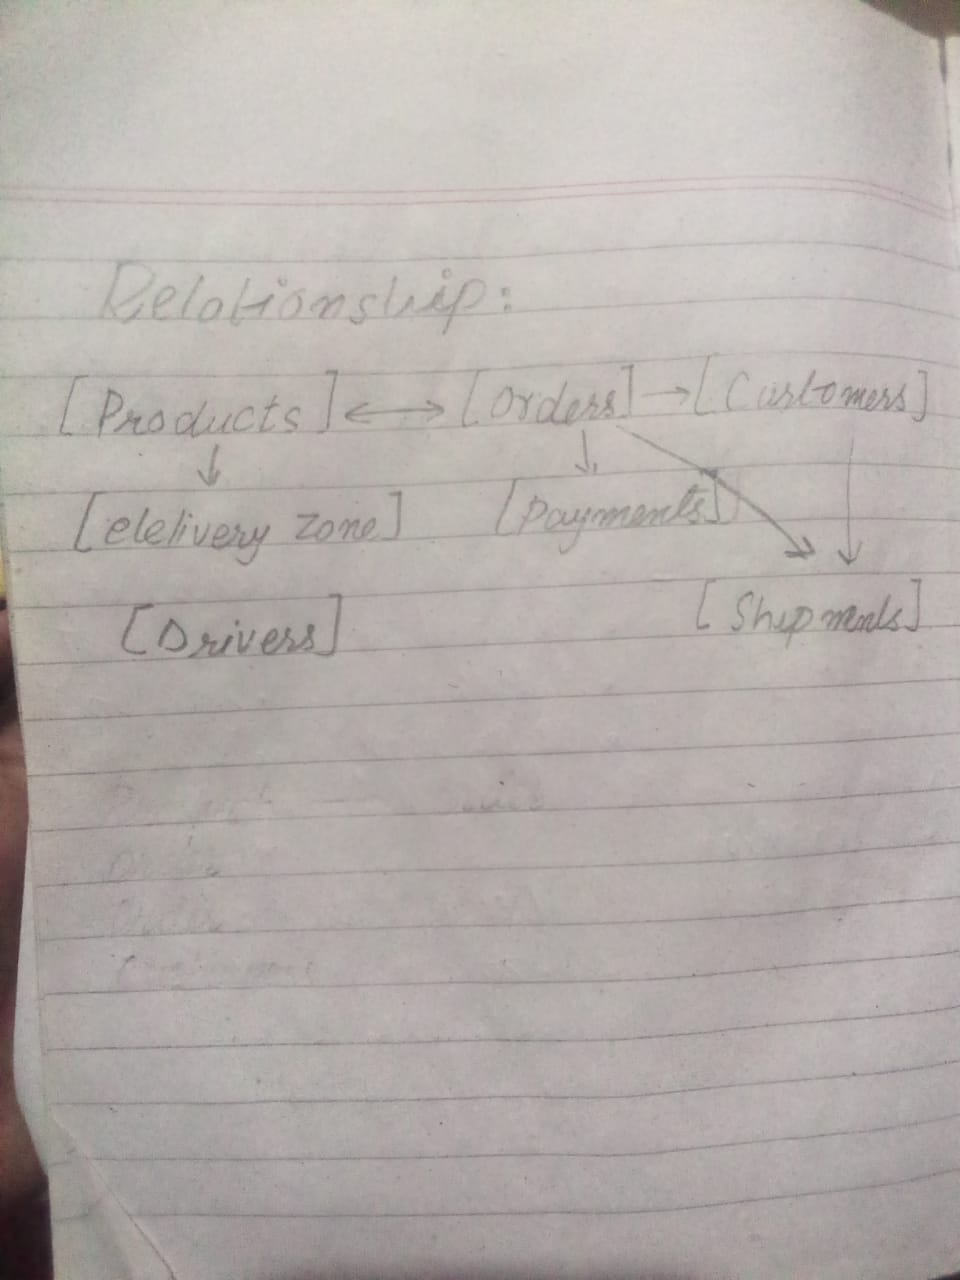 Relationship:
[Products] ↔ [Orders] → [Customers]
[delivery zone] [Payments]
[Drivers] [Shipments]